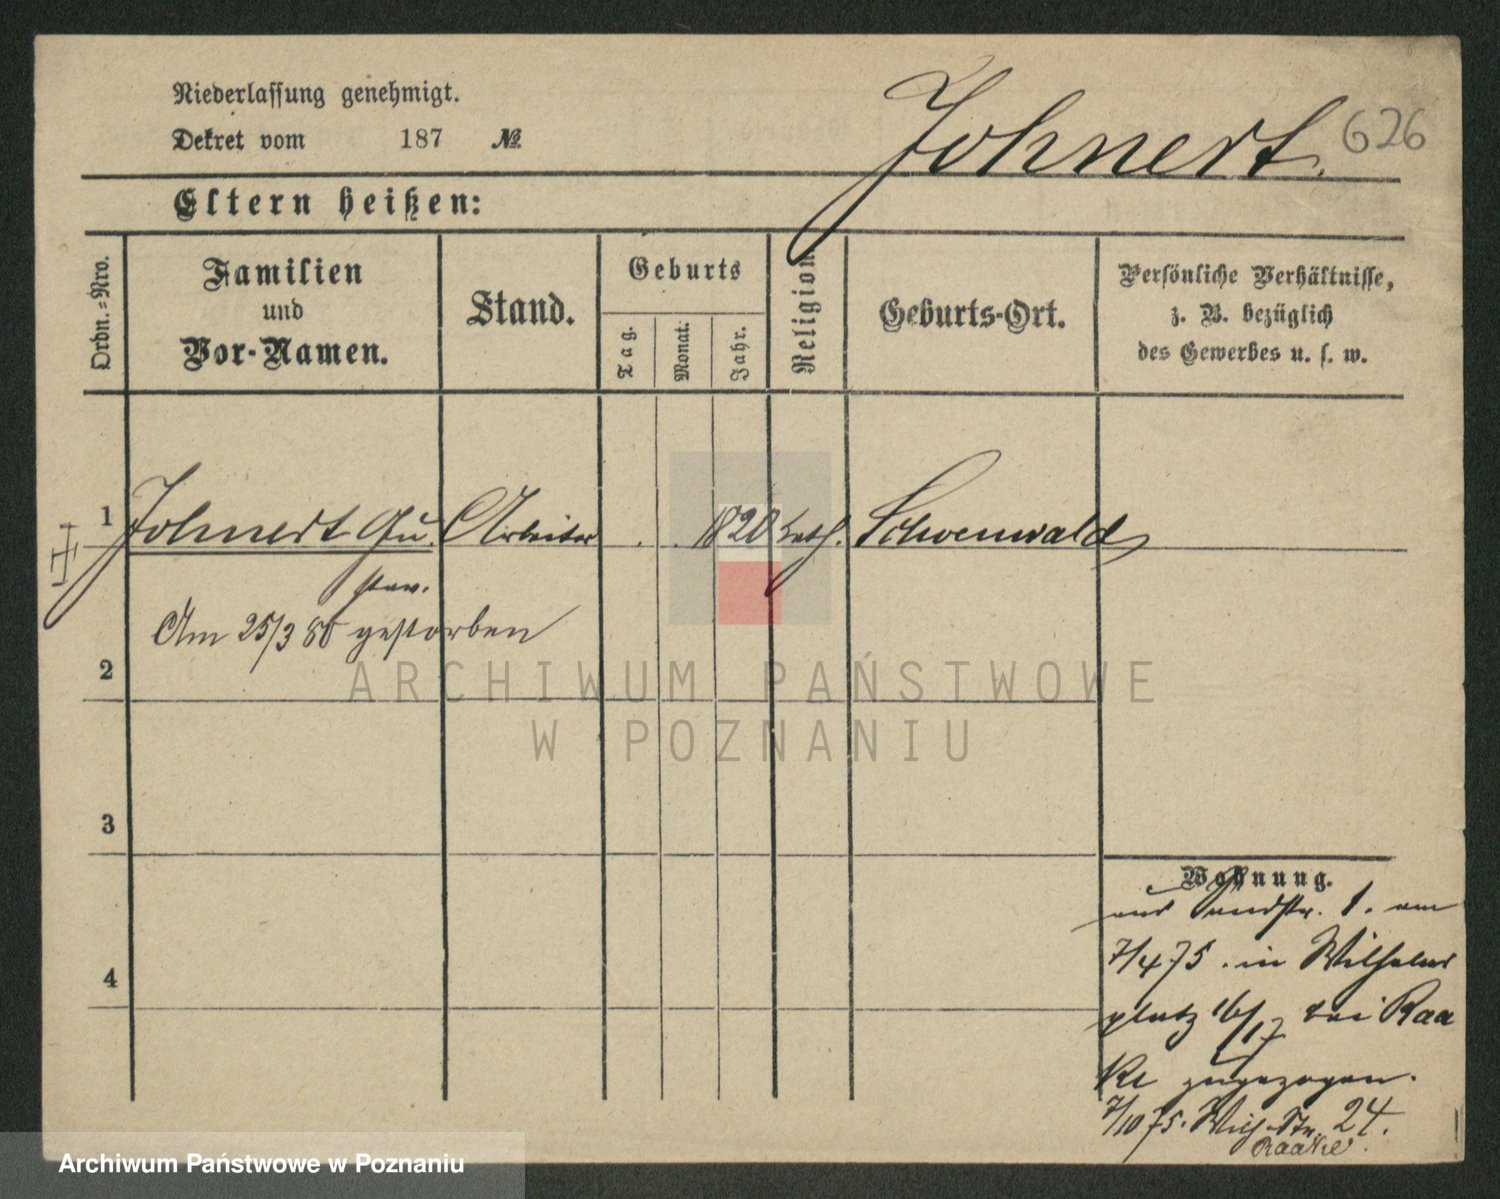 Niederlassung genehmigt.
Dekret vom 187 №
Johnert.
626
Eltern heißen:
Ordn.-Nro.
Familien
und
Vor-Namen.
Stand.
Geburts
Tag.
Monat.
Jahr.
Religion
Geburts-Ort.
Persönliche Verhältnisse,
z. B. bezüglich
des Gewerbes u. s. w.
1 Johnert Gu- Arbeiter . . 1820 kath. Schoenwald
stav.
Am 25/3 80 gestorben
2
3
4
ARCHIWUM PAŃSTWOWE
W POZNANIU
Wohnung.
aus 1. am
7/4 75. in Wilhelms
platz 16/17 bei Raa
ke zugezogen.
7/10 75. Wilh. Str. 24.
Raake.
Archiwum Państwowe w Poznaniu